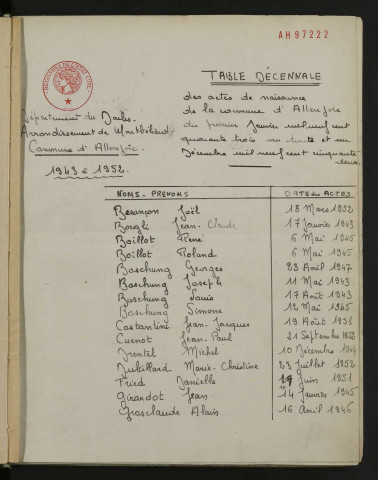 AH97222
REGISTRES DE L'ETAT CIVIL
TABLE DÉCENNALE
des actes de naissance
de la commune d'Allenjoie
du premier Janvier mil neuf cent
quarante trois au trente et un
Décembre mil neuf cent cinquante
deux.
Département du Doubs
Arrondissement de Montbéliard
Commune d'Allenjoie
1943 à 1952.
NOMS - PRENOMS DATE des ACTES
Besançon Joël 18 Mars 1952
Boegli Jean-Claude 17 Janvier 1943
Boillot René 6 Mai 1945
Boillot Roland 6 Mai 1945
Boschung Georges 23 Avril 1947
Boschung Joseph 11 Mai 1943
Boschung Louis 17 Août 1943
Boschung Simone 12 Mai 1945
Costantini Jean-Jacques 19 Août 1951
Cuenot Jean-Paul 21 Septembre 1952
Michel 10 Décembre
Marie-Christine 23 Juillet 1952
Fried Danielle Juin 1951
Girardot Jean 14 Janvier 1945
Grosclaude Alain 16 Avril 1946